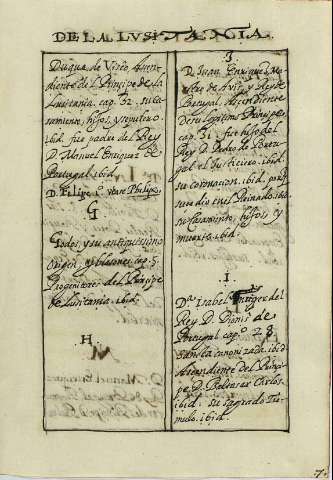 DE LA LUSITANIA.
Duque de Viseo, Ascen-
diente del Principe de la
Lusitania. cap. 32. su ca-
samiento, hijos, y sepulcro
ibid. fue padre del Rey
D. Manuel Enriquez de
Portugal. ibid.
D. Felipe 1º. vide Philipo.
G
Godos, y su antiquissimo
origen, y blasones. cap. 5.
Progenitores del Principe
de Lusitania. ibid.
H.
I
D. Juan Enriquez Ma-
estre de Avis, y Rey de
Portugal, Ascendiente
de su legitimo Principe,
cap. 31. fue hijo del
Rey D. Pedro de Portu-
gal el Justiciero. ibid.
su coronacion. ibid.
en el Reinado. ibid.
su Casamiento, hijos, y
muerte. ibid.
I.
Dª. Isabel muger del
Rey D. Dionis de
Portugal cap. 28
Santa canonizada. ibid.
Ascendiente del Princi-
pe D. Baltasar Carlos.
ibid. su sagrado Tu-
mulo. ibid.
7.